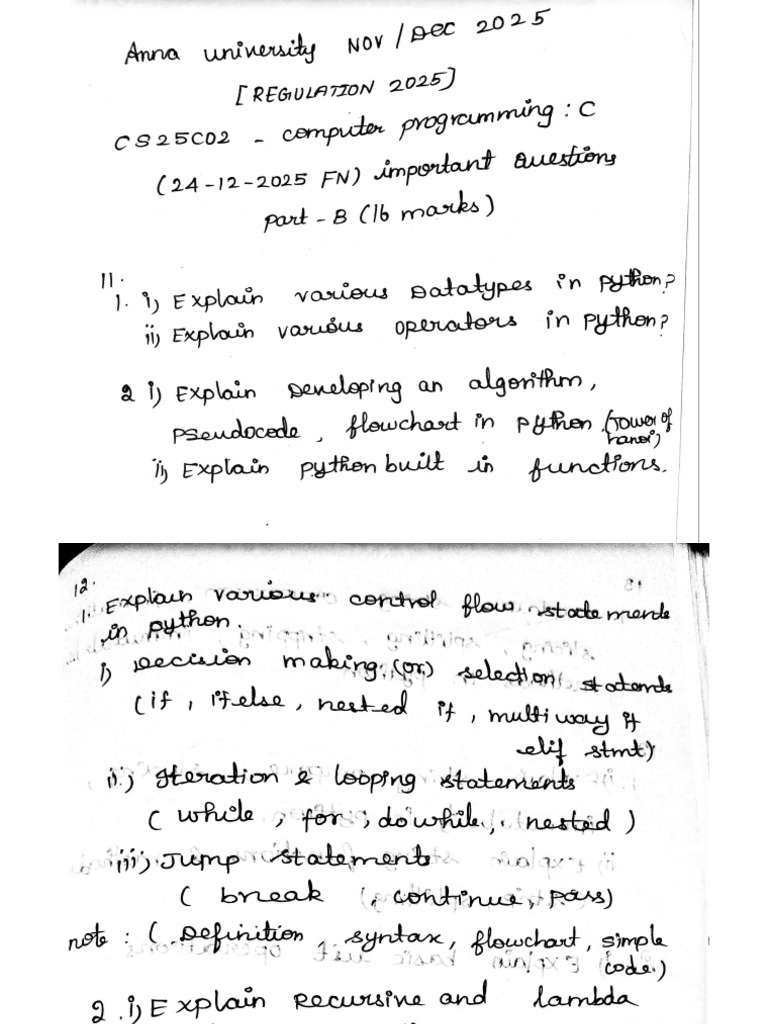 Anna university NOV / DEC 2025
[REGULATION 2025]
CS25C02 - computer programming : C
(24-12-2025 FN) important Questions
part - B (16 marks)
11.
1. i) Explain various Datatypes in python?
ii) Explain various operators in python?
2 i) Explain Developing an algorithm,
pseudocode, flowchart in python. (Tower of
hanoi)
ii) Explain python built in functions.
12.
1. Explain various control flow statements
in python.
i) Decision making (or) selection statements
(if, if else, nested if, multiway if
elif stmt)
ii) Iteration & looping statements
( while, for, do while, nested )
iii) Jump statements
( break, continue, pass)
note : ( Definition, syntax, flowchart, simple
code.)
2. i) Explain Recursive and lambda